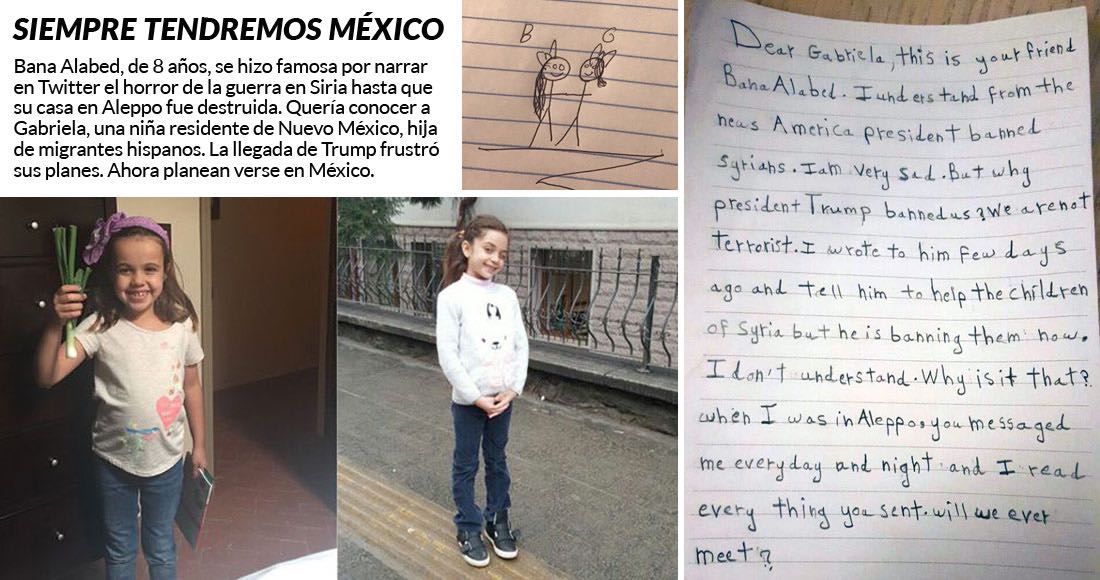 SIEMPRE TENDREMOS MÉXICO
Bana Alabed, de 8 años, se hizo famosa por narrar
en Twitter el horror de la guerra en Siria hasta que
su casa en Aleppo fue destruida. Quería conocer a
Gabriela, una niña residente de Nuevo México, hija
de migrantes hispanos. La llegada de Trump frustró
sus planes. Ahora planean verse en México.
B G
Dear Gabriela, this is your friend
Bana Alabed. I understand from the
news America president banned
syrians. Iam very sad. But why
president Trump banned us? We are not
terrorist. I wrote to him few days
ago and tell him to help the children
of syria but he is banning them now.
I don't understand. Why is it that?
when I was in Aleppo, you messaged
me everyday and night and I read
every thing you sent. will we ever
meet?